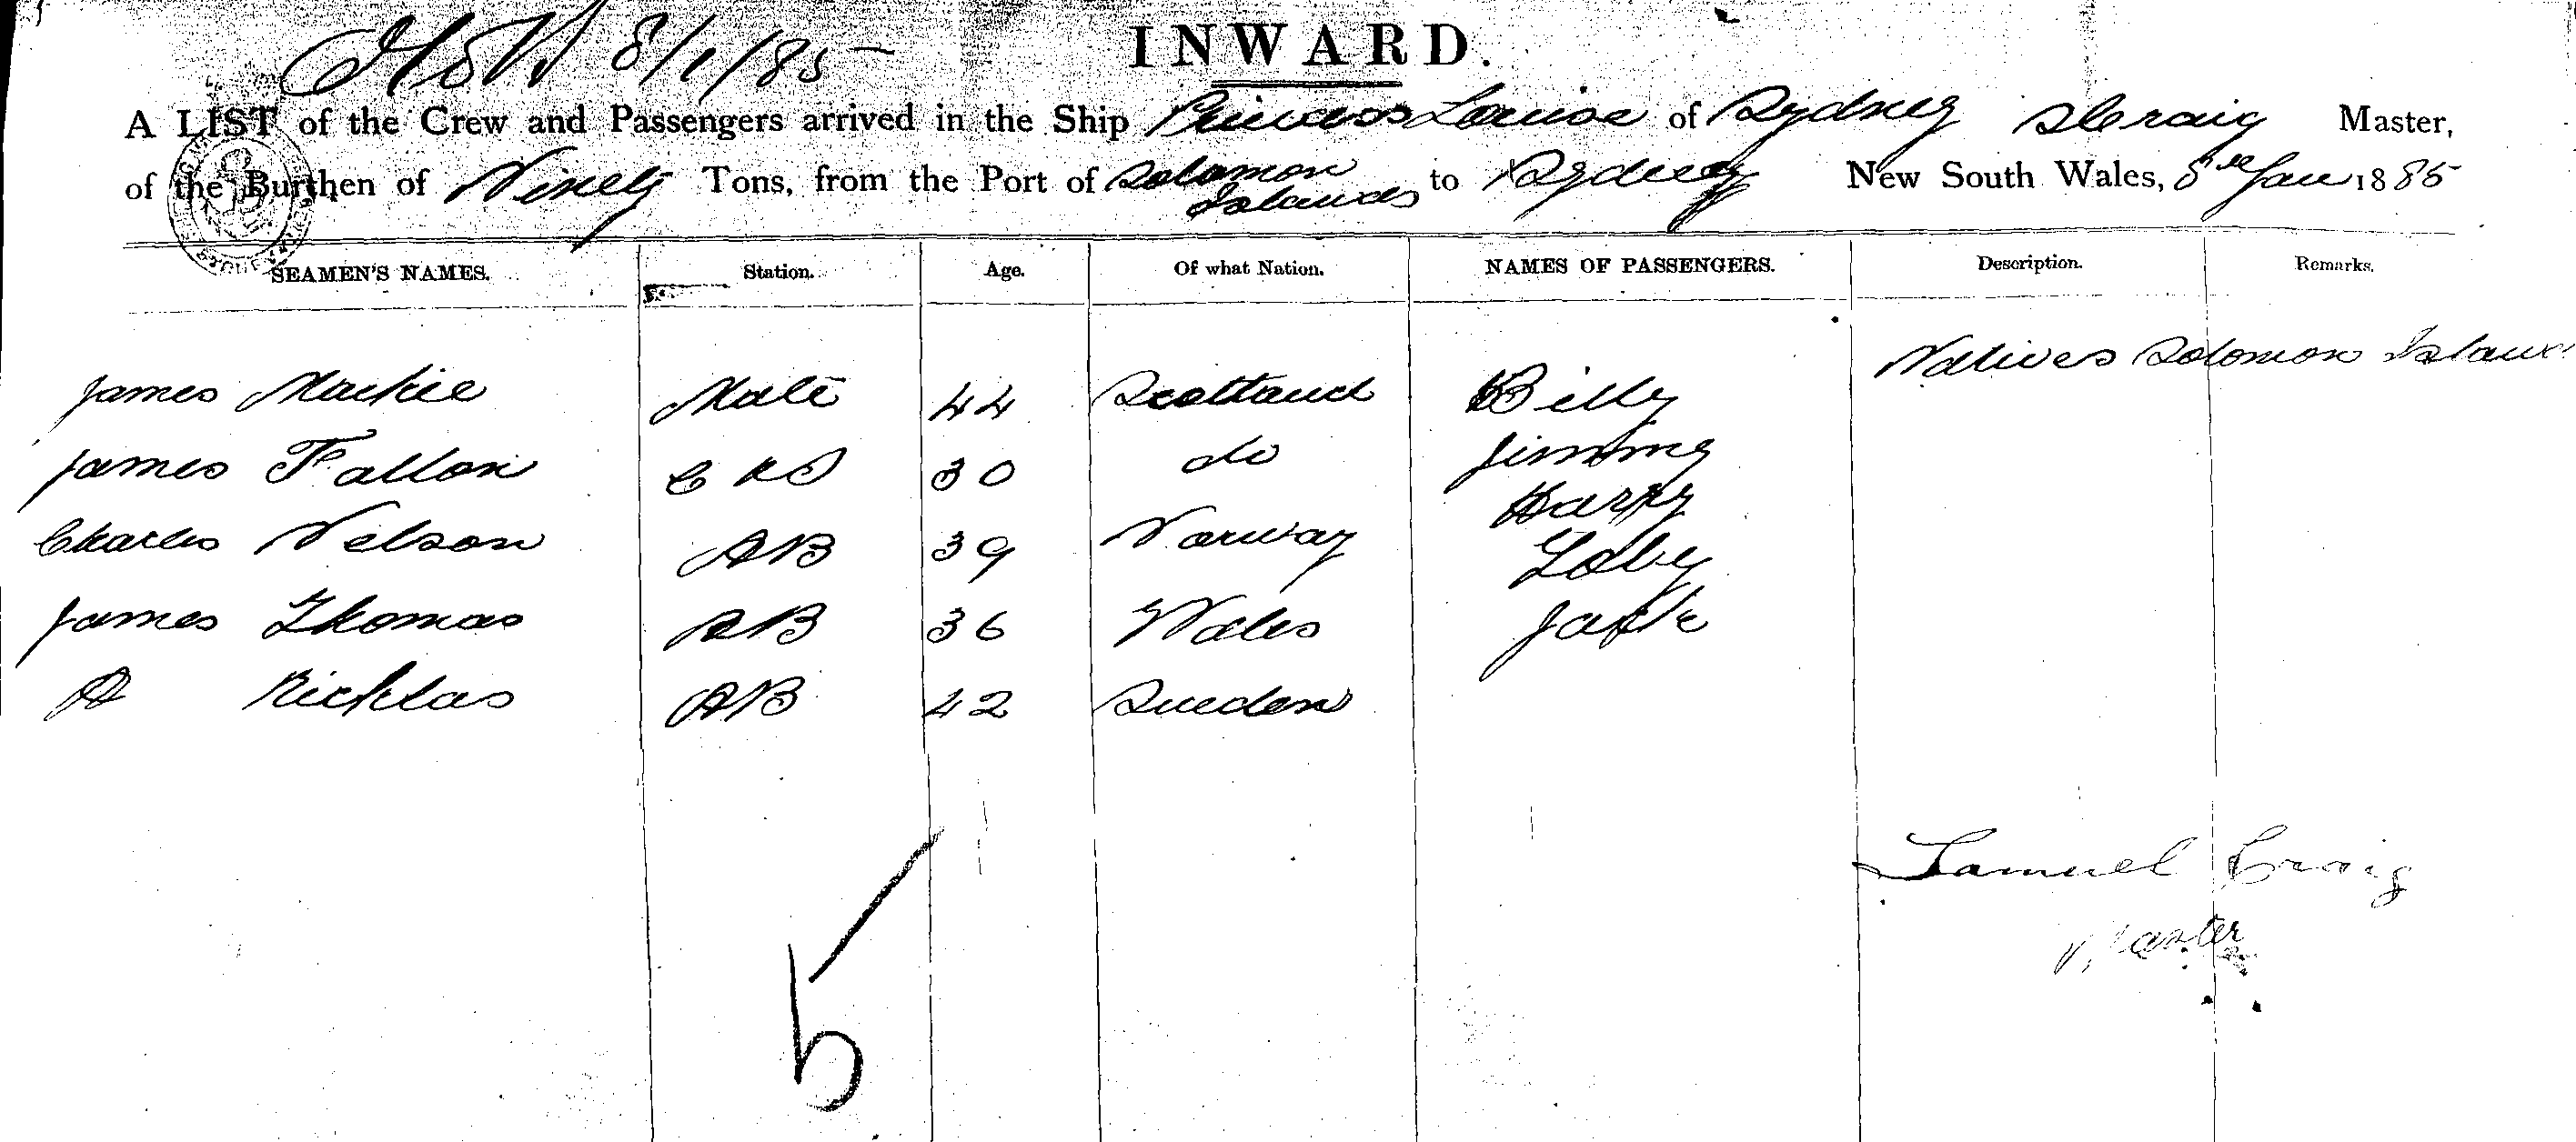 8/1/85
INWARD.
A LIST of the Crew and Passengers arrived in the Ship Princess Louise of Sydney S Craig Master,
of the Burthen of Ninety Tons, from the Port of Solomon Islands to Sydney New South Wales, 8th Jan 1885
SEAMEN'S NAMES. Station. Age. Of what Nation. NAMES OF PASSENGERS. Description. Remarks.
Natives Solomon Island
James Mackie Mate 44 Scotland Billy
James Fallon C & S 30 do Jimmy
Harry
Charles Nelson AB 39 Norway Toby
James Thomas AB 36 Wales Jack
A Nicklas AB 42 Sweden
Samuel Craig
Master
5